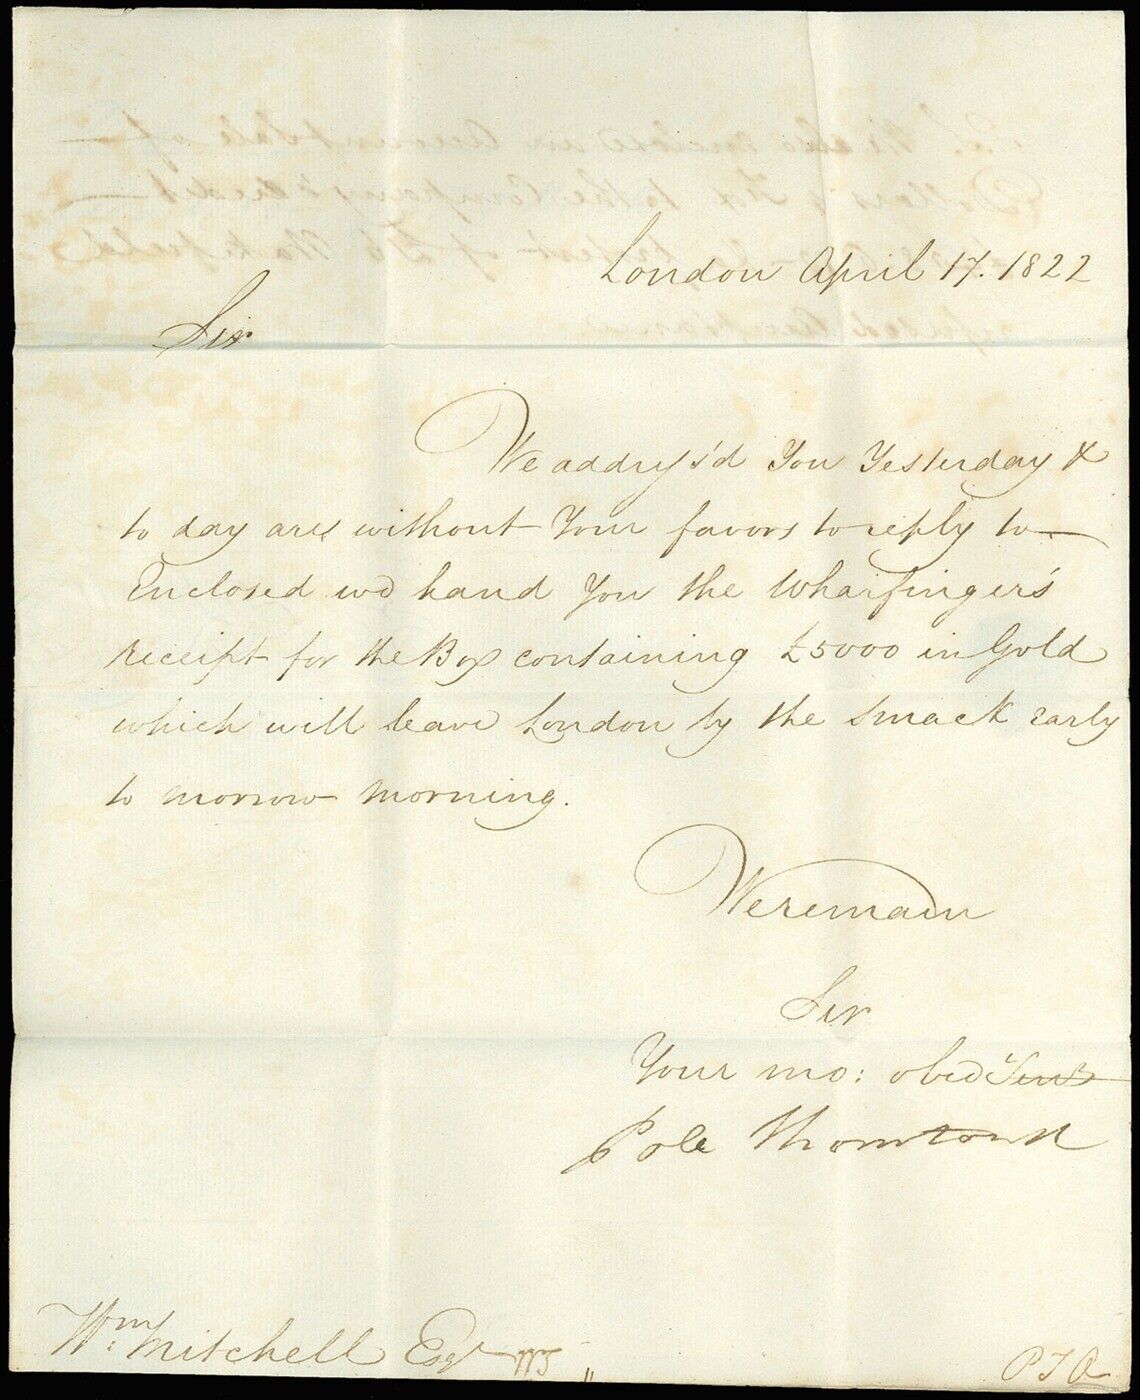 London April 17. 1822
Sir
We addrejs'd You Yesterday &
to day are without Your favors to reply to
Enclosed we hand You the Wharfinger's
receipt for the Box containing £5000 in Gold
which will leave London by the Smack early
to morrow morning.
We remain
Sir
Your mo: obed Servts
Pole Thornton &
Wm. Mitchell Esqr
P T O